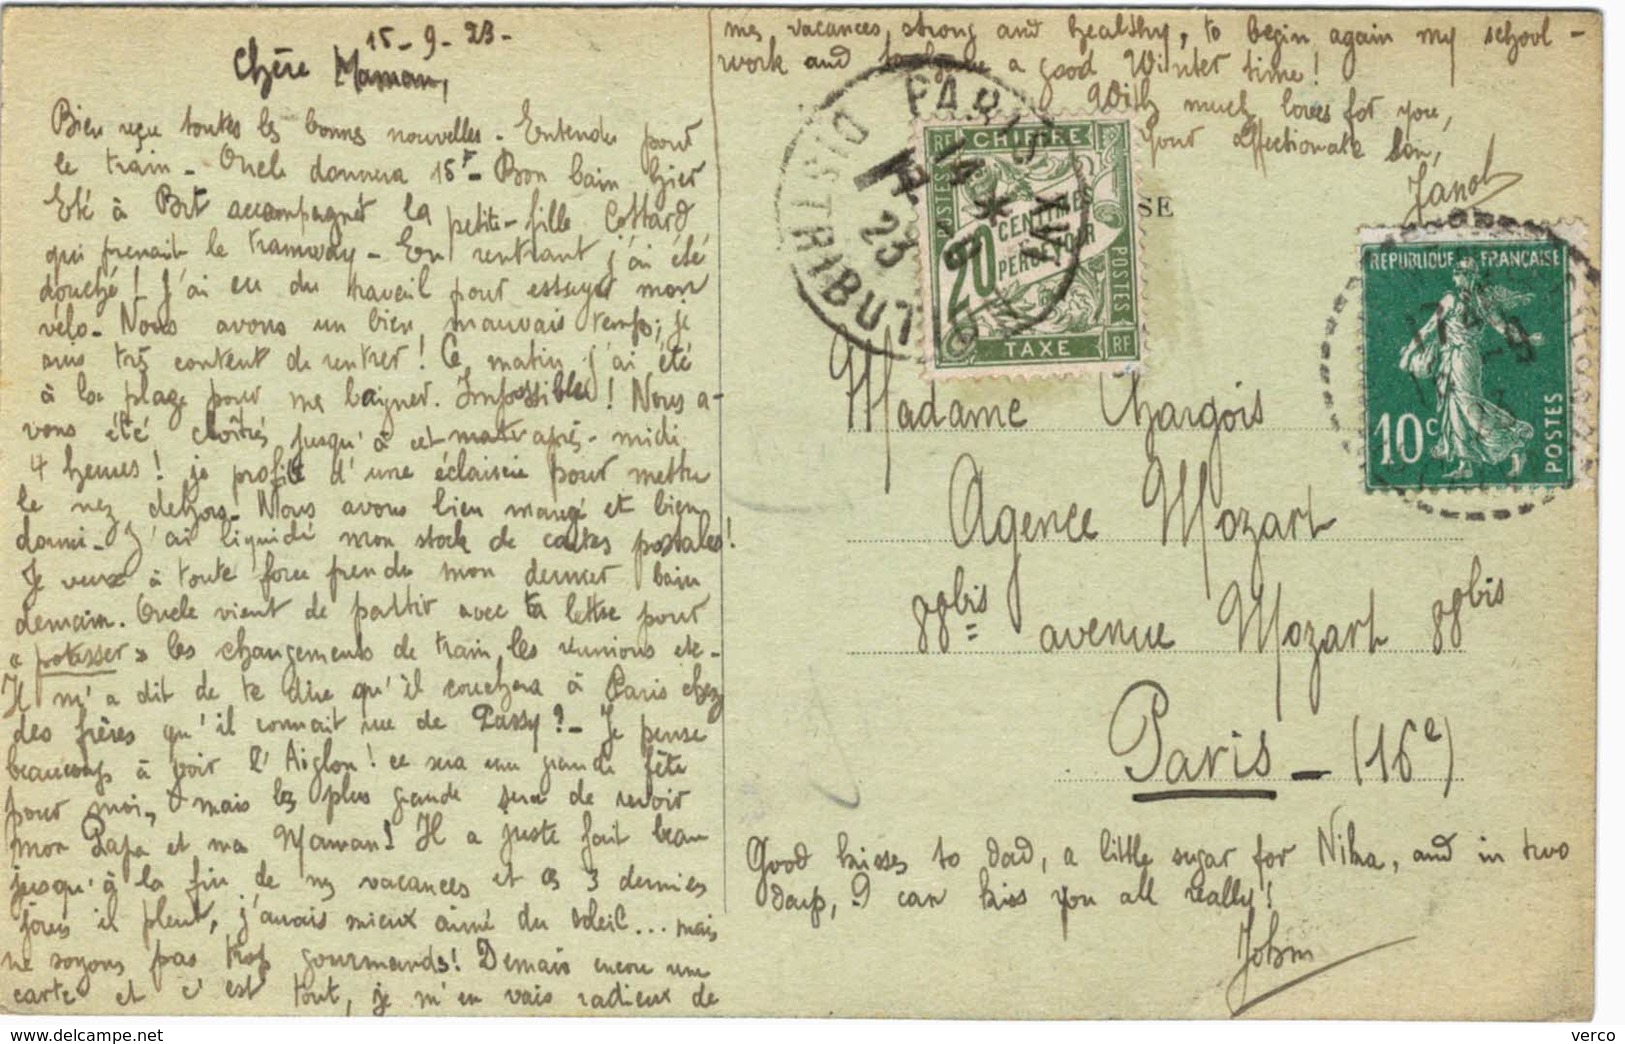 15-9-23-
Chère Maman,
Bien reçu toutes les bonnes nouvelles. Entendu pour
le train - Oncle donnera 15F - Bon bain hier
Eté à accompagner la petite-fille Cottard
qui prenait le tramway - En rentrant j'ai été
douché! J'ai eu du travail pour essuyer mon
vélo. Nous avons un bien mauvais temps; je
suis très content de rentrer! Ce matin j'ai été
à la plage pour me baigner. Impossible! Nous a-
vons été cloîtrés jusqu'à cet après-midi
4 heures! je profite d'une éclaircie pour mettre
le nez dehors. Nous avons bien mangé et bien
dormi - J'ai liquidé mon stock de cartes postales!
Je veux à toute force prendre mon dernier bain
demain. Oncle vient de partir avec ta lettre pour
"potasser" les changements de train, les réunions etc-
Il m'a dit de te dire qu'il couchera à Paris chez
des frères qu'il connait rue de Passy? - Je pense
beaucoup à voir l'Aiglon! ce sera une grande fête
pour moi, mais la plus grande sera de revoir
mon Papa et ma Maman! Il a juste fait beau
jusqu'à la fin de nos vacances et ces 3 derniers
jours il pleut, j'aurais mieux aimé du soleil... mais
ne soyons pas trop gourmands! Demain encore une
carte et c'est tout, je m'en vais radieux de
mes vacances, strong and healthy, to begin again my school-
work and to have a good Winter time!
With much loves for you,
Your affectionate son,
Janot
PARIS XVI
DISTRIBUTION
14 * 9
23
CHIFFRE
POSTES
20 CENTIMES
À PERCEVOIR
POSTES
TAXE RF
SE
REPUBLIQUE FRANÇAISE
10c
POSTES
Madame Chargois
Agence Mozart
88bis avenue Mozart 88bis
Paris - (16e)
Good kisses to dad, a little sugar for Nika, and in two
days, I can kiss you all really!
John
verco